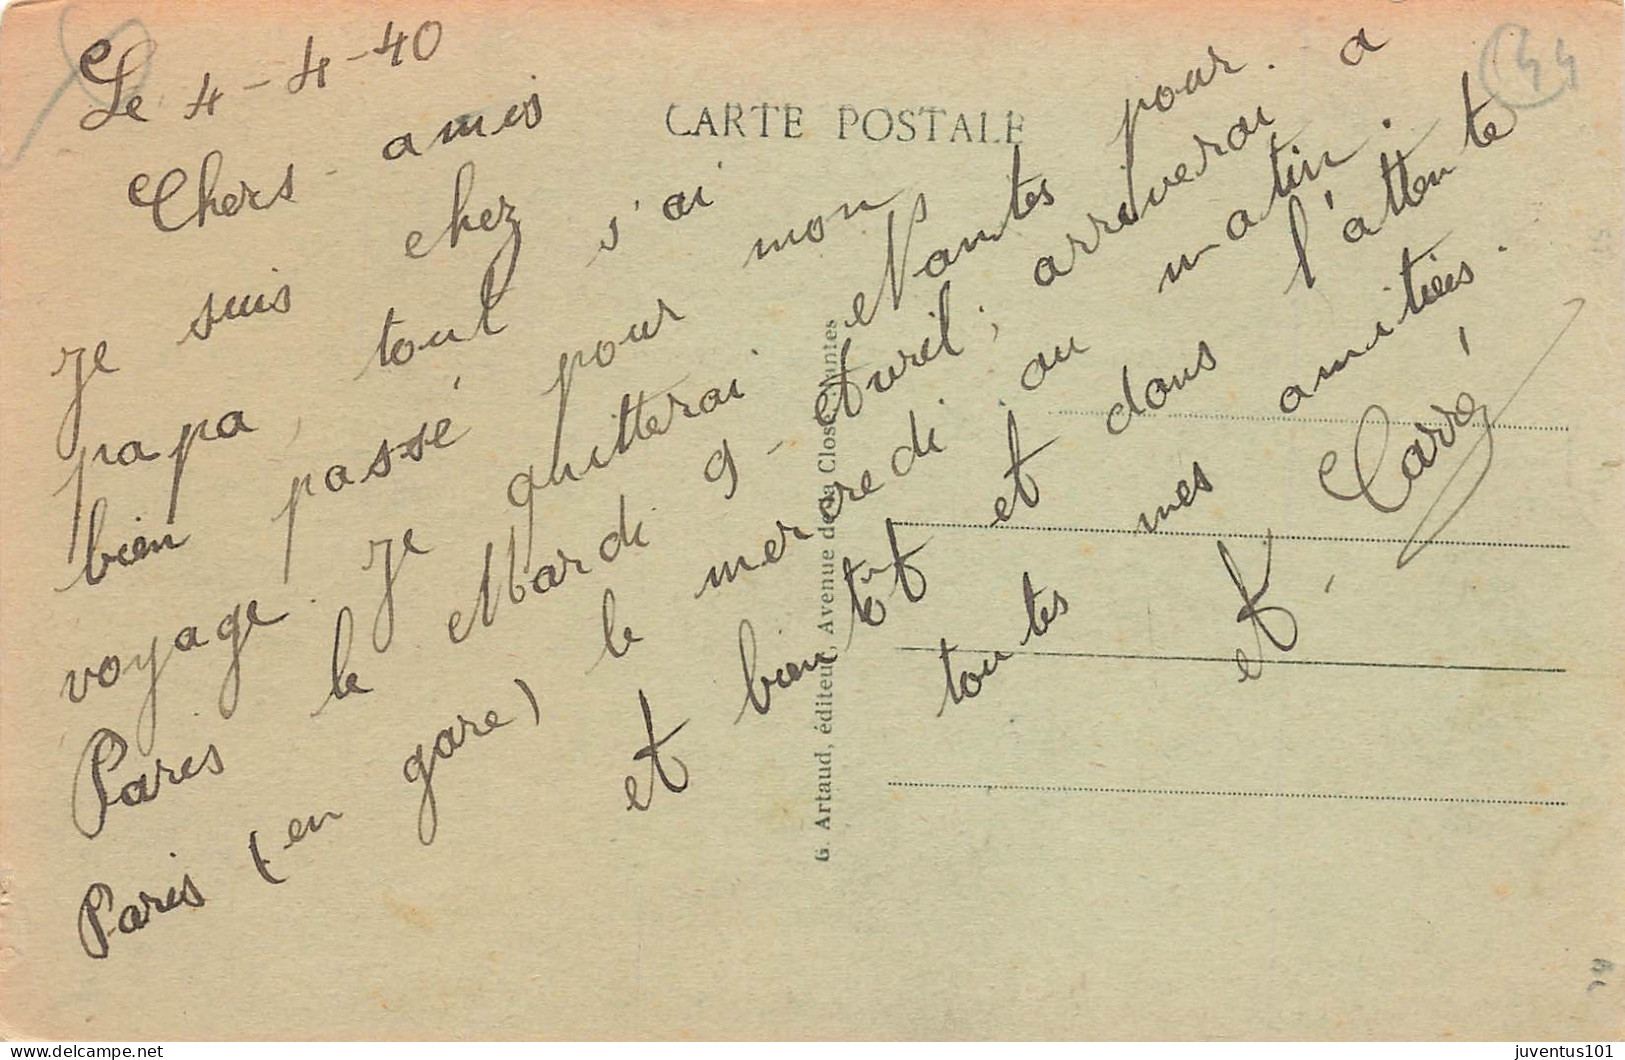 Le 4-4-40
Chers amis
Je suis chez
papa, tout s'ai
bien passé pour mon
voyage. Je quitterai Nantes pour.
Paris le Mardi 9 - Avril, arriverai a
Paris (en gare) le mercredi au matin.
et bientôt et dans l'attente
toutes mes amitiées.
et. Carré
CARTE POSTALE
G. Artaud, éditeur, Avenue de la Close, Nantes
44
juventus101